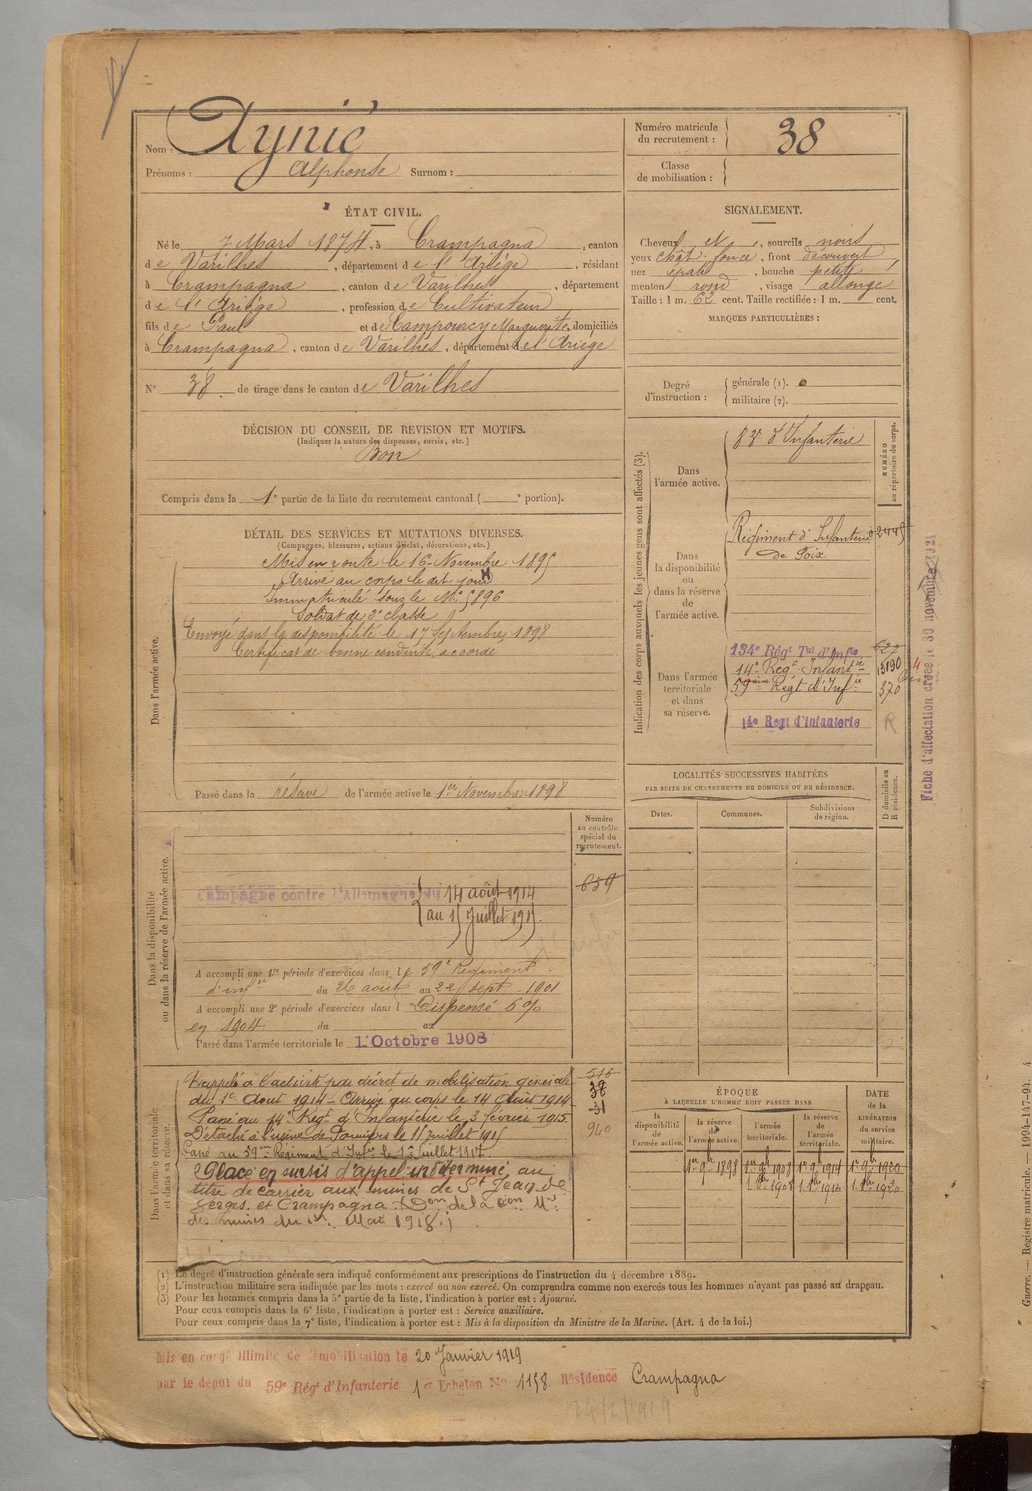 Nom : Aynié
Prénoms : Alphonse Surnom :
Numéro matricule du recrutement : 38
Classe de mobilisation :
ÉTAT CIVIL.
Né le 7 Mars 1874, à Crampagna, canton
de Varilhes, département de l'Ariège, résidant
à Crampagna, canton de Varilhes, département
de l'Ariège, profession de Cultivateur
fils de Paul et de Campourcy Marguerite, domiciliés
à Crampagna, canton de Varilhes, département de l'Ariège
N° 38 de tirage dans le canton de Varilhes
SIGNALEMENT.
Cheveux et, sourcils noirs
yeux chât. foncé, front découvert
nez épaté, bouche petite,
menton rond, visage allongé
Taille : 1 m. 62 cent. Taille rectifiée : 1 m. cent.
MARQUES PARTICULIÈRES :
Degré d'instruction : générale (1).
militaire (2).
DÉCISION DU CONSEIL DE REVISION ET MOTIFS.
(Indiquer la nature des dispenses, sursis, etc.)
Bon
Compris dans la 1e partie de la liste du recrutement cantonal ( e portion).
DÉTAIL DES SERVICES ET MUTATIONS DIVERSES.
(Campagnes, blessures, actions d'éclat, décorations, etc.)
Dans l'armée active.
Mis en route le 16 Novembre 1895
Arrivé au corps le dit jour
Immatriculé sous le N° 5896
Soldat de 2e classe
Envoyé dans la disponibilité le 17 Septembre 1898
Certificat de bonne conduite accordé
Passé dans la réserve de l'armée active le 1er Novembre 1898
Indication des corps auxquels les jeunes gens sont affectés (3).
NUMÉRO au répertoire du corps.
Dans l'armée active.
d'Infanterie
Dans la disponibilité ou dans la réserve de l'armée active.
Régiment d'Infanterie
de Foix
Dans l'armée territoriale et dans sa réserve.
134e Régt Tal d'Infie
14e Régt Infantie 5190
59e Régt d'Infie 370
14e Regt d'Infanterie R
Fiche d'affectation créée le 30 novembre 1921
LOCALITÉS SUCCESSIVES HABITÉES
PAR SUITE DE CHANGEMENTS DE DOMICILE OU DE RÉSIDENCE.
Dates. Communes. Subdivisions de région. D domicile ou R résidence.
Numéro au contrôle spécial du recrutement.
Dans la disponibilité ou dans la réserve de l'armée active.
659
Campagne contre l'Allemagne du 14 août 1914
au 15 juillet 1915
A accompli une 1re période d'exercices dans le 59e Régiment
d'infie du 26 août au 22 sept. 1901
A accompli une 2e période d'exercices dans l Dispensé 6 %
en 1904 du au
Passé dans l'armée territoriale le 1er Octobre 1908
Dans l'armée territoriale et dans sa réserve.
Rappelé à l'activité par décret de mobilisation générale
du 1er Août 1914 - Arrivé au corps le 14 Août 1914
38
Passé au 14e Régt d'Infanterie le 3 février 1915
31
Détaché à l'usine de Pamiers le 15 juillet 1915
940
Passé au 59eme Régiment d'Infie le 1er juillet 1917.
Placé en sursis d'appel indéterminé au
titre de carrier aux mines de St Jean de
Verges et Crampagna
des Mines du Mai 1918)
ÉPOQUE
À LAQUELLE L'HOMME DOIT PASSER DANS
la disponibilité de l'armée active. la réserve de l'armée active. l'armée territoriale. la réserve de l'armée territoriale.
DATE de la LIBÉRATION du service militaire.
1er 9b 1898
(1) Le degré d'instruction générale sera indiqué conformément aux prescriptions de l'instruction du 4 décembre 1889.
(2) L'instruction militaire sera indiquée par les mots : exercé ou non exercé. On comprendra comme non exercés tous les hommes n'ayant pas passé au drapeau.
(3) Pour les hommes compris dans la 5e partie de la liste, l'indication à porter est : Ajourné.
Pour ceux compris dans la 6e liste, l'indication à porter est : Service auxiliaire.
Pour ceux compris dans la 7e liste, l'indication à porter est : Mis à la disposition du Ministre de la Marine. (Art. 4 de la loi.)
Mis en congé illimité de démobilisation le 20 Janvier 1919
par le dépôt du 59e Régt d'Infanterie 1er Echelon No 1158 Résidence Crampagna
24/2/1919
Guerre. — Registre matricule. — 1994-147-94.